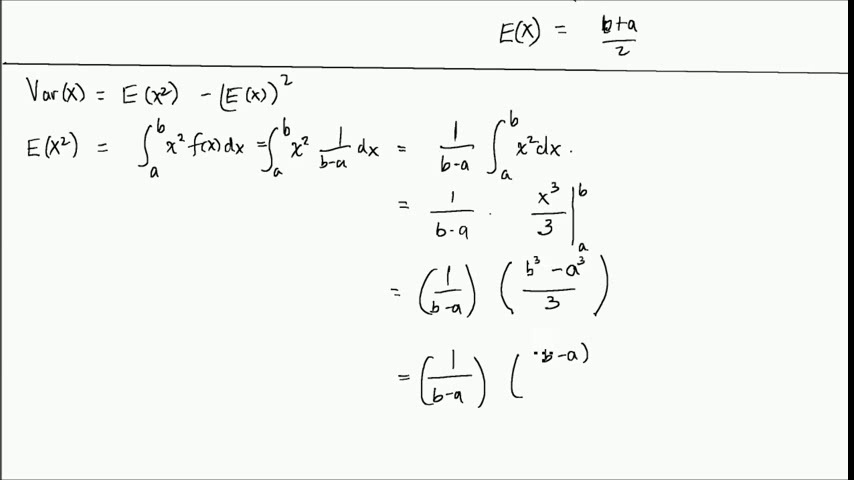 E(X) = b+a/2
Var(X) = E(X²) - (E(X))²
E(X²) = ∫_a^b x² f(x)dx = ∫_a^b x² 1/(b-a) dx = 1/(b-a) ∫_a^b x² dx.
= 1/(b-a) · x³/3 |_a^b
= (1/(b-a)) ((b³-a³)/3)
= (1/(b-a)) ( b-a)